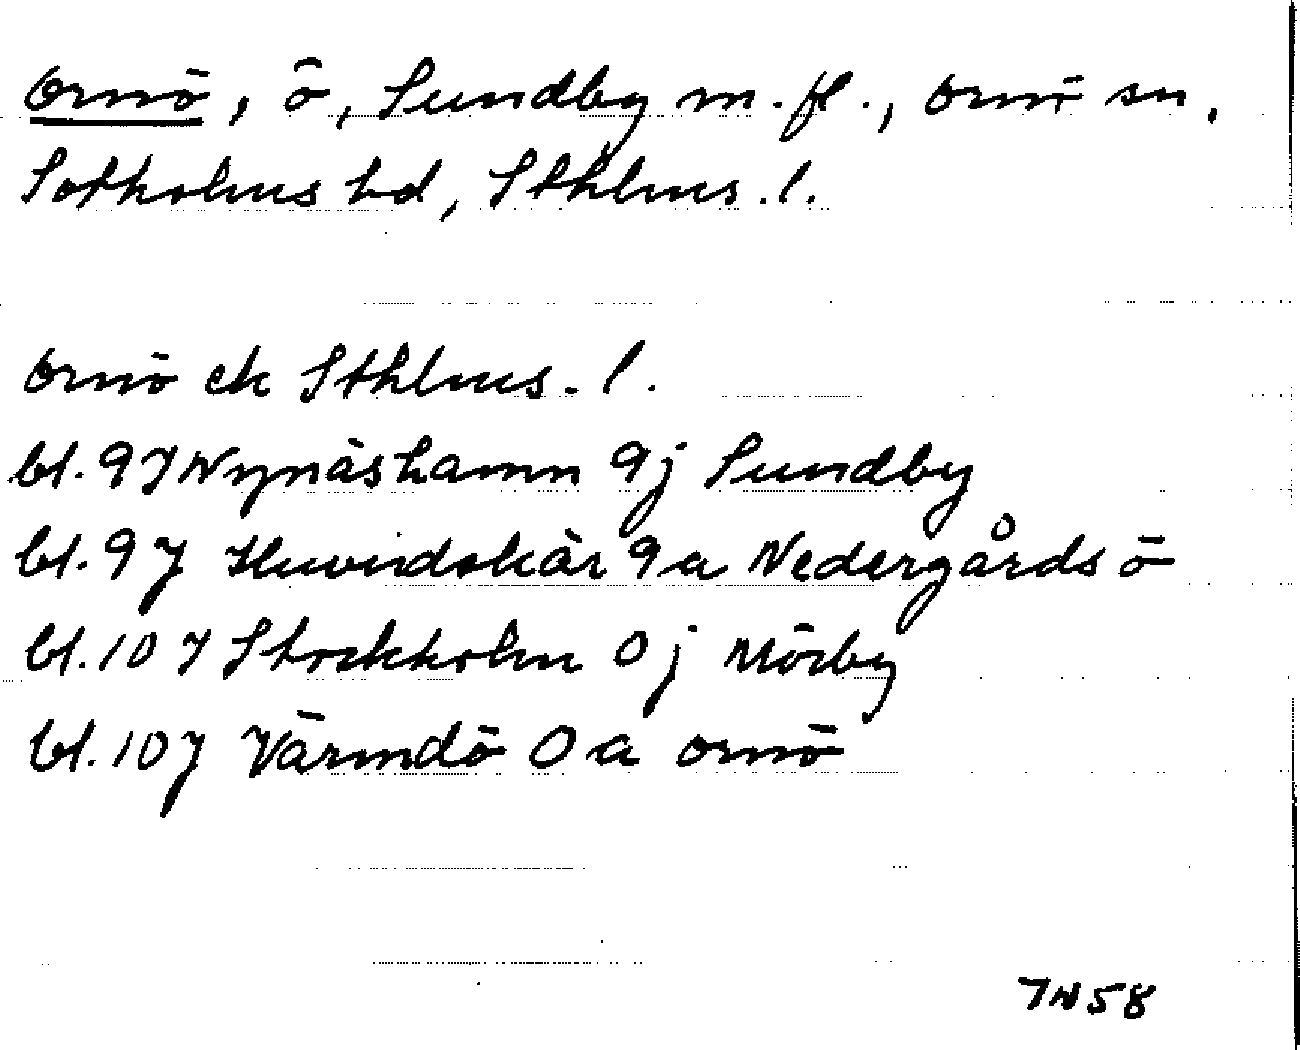 Ornö, ö, Sundby m. fl., Ornö sn,
Sotholms hd, Sthlms. l.
Ornö ek Sthlms. l.
bl. 9 J Nynäshamn 9j Sundby
bl. 9 J Huvudskär 9a Nedergårdsö
bl. 10 J Stockholm 0j Mörby
bl. 10 J Värmdö 0a Ornö
7N58